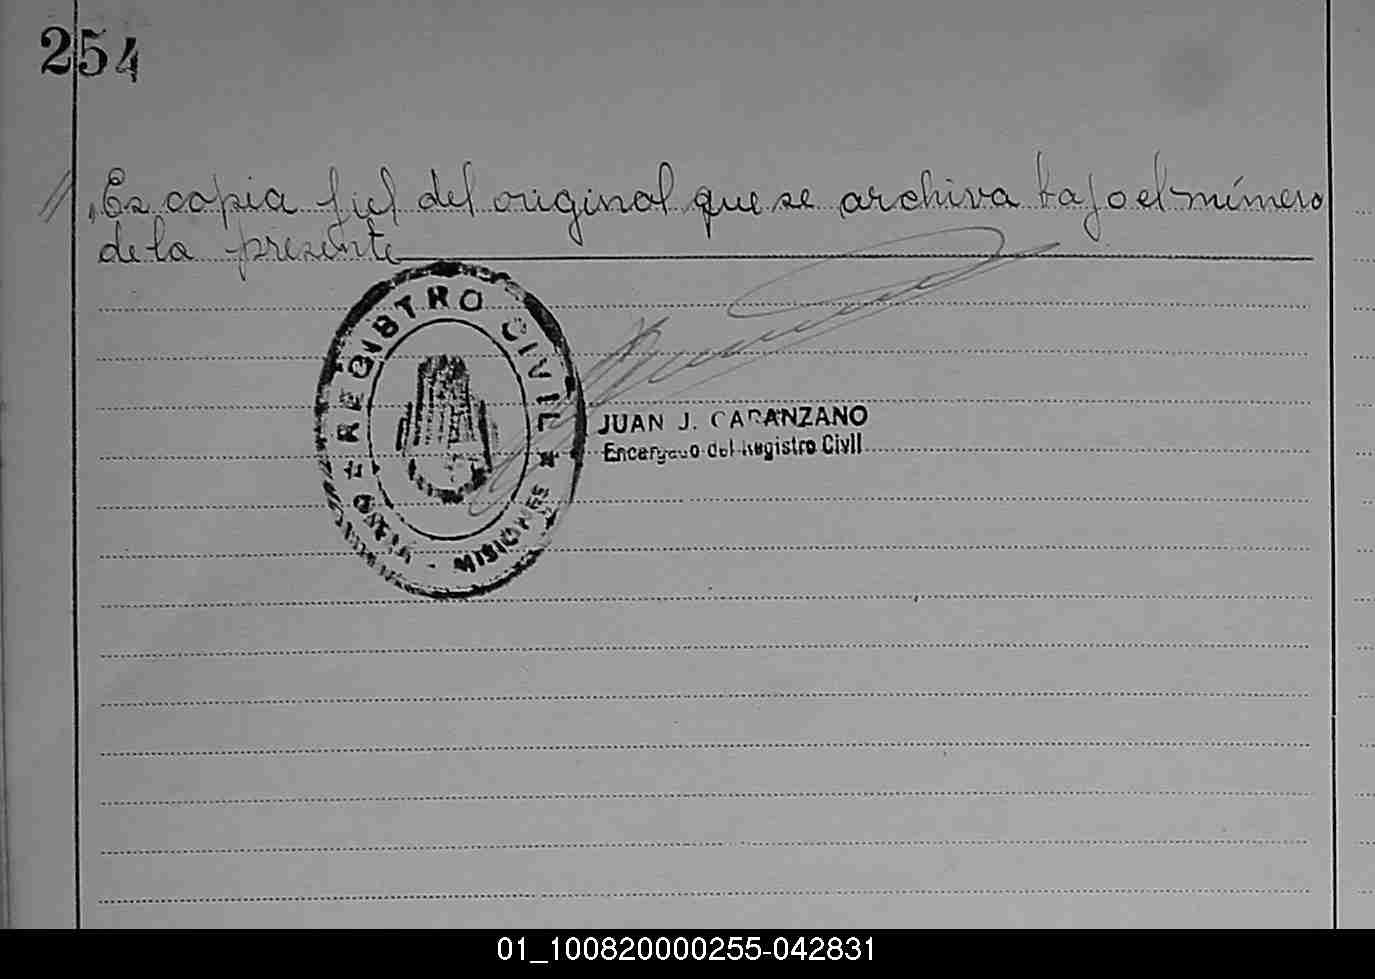 254
Es copia fiel del original que se archiva bajo el número
de la presente
REGISTRO CIVIL
MISIONES
JUAN J. CARANZANO
Encargado del Registro Civil
01_100820000255-042831